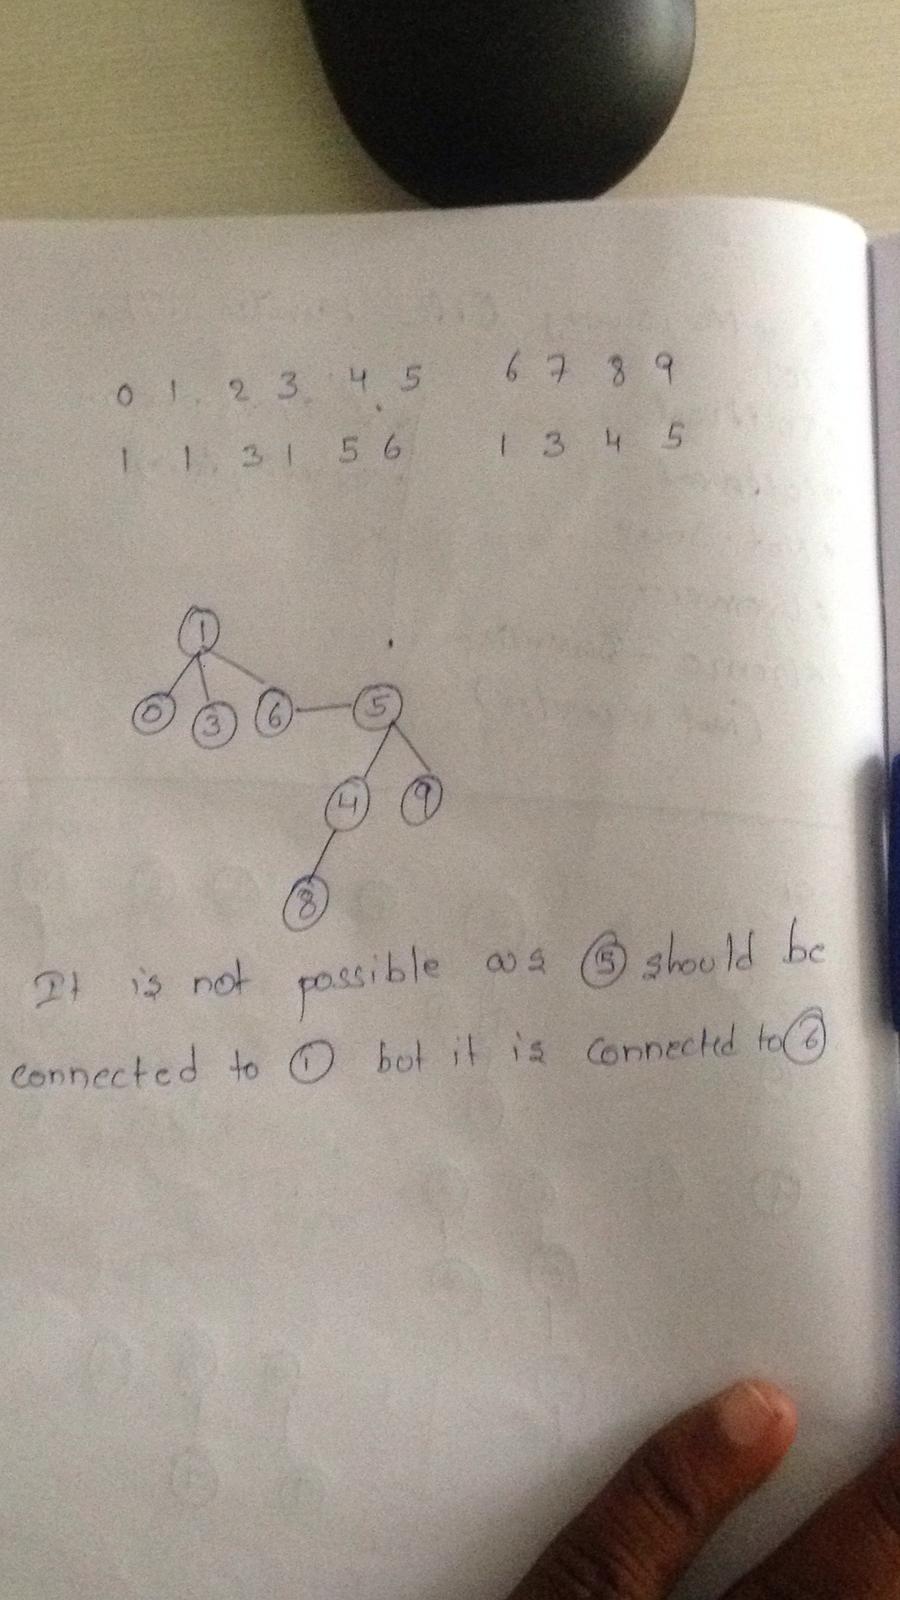 0 1 2 3 4 5 6 7 8 9
1 1 3 1 5 6 1 3 4 5
1
0 3 6 5
4 9
8
It is not possible as 5 should be
connected to 1 but it is connected to 6